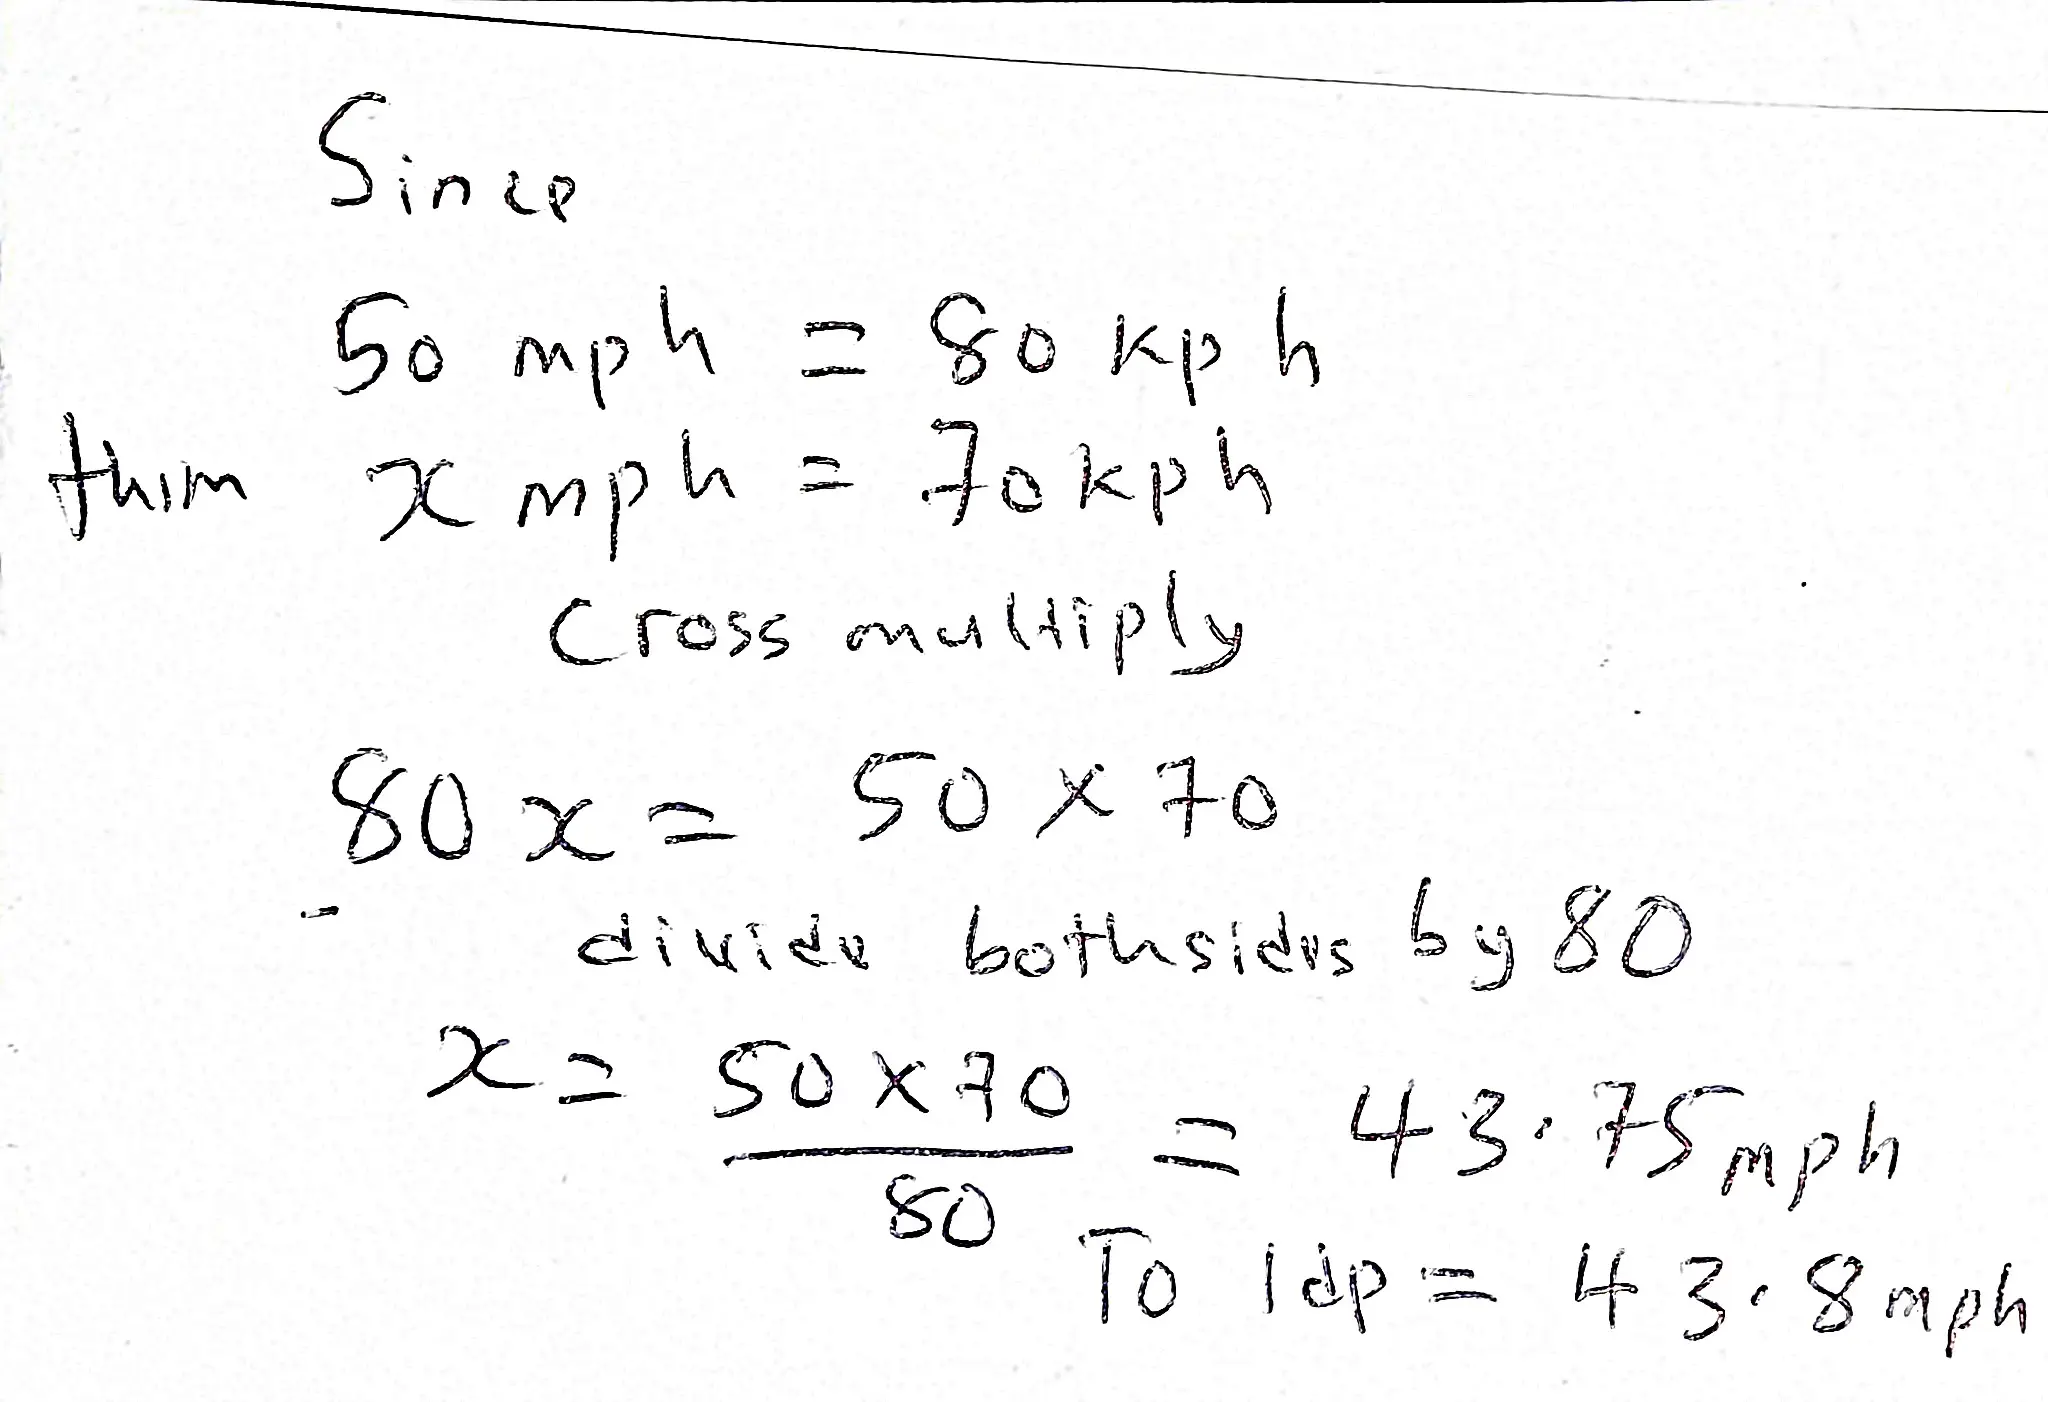 Since
50 mph = 80 kph
then x mph = 70 kph
cross multiply
80x = 50 × 70
divide both sides by 80
x = 50 × 70 / 80 = 43.75 mph
To 1dp = 43.8 mph